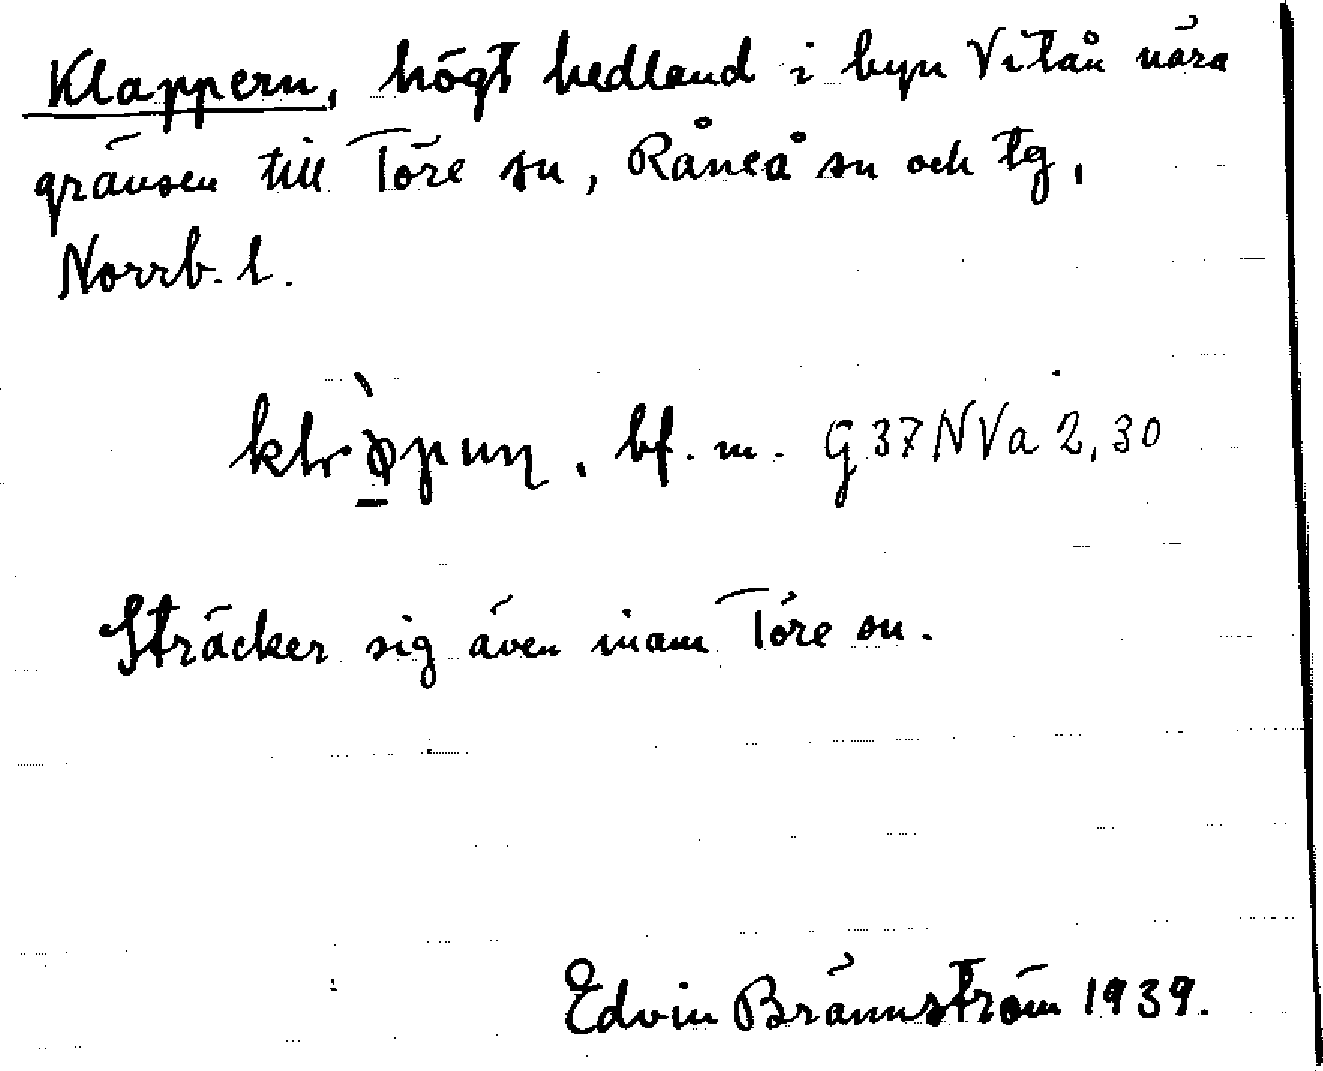 Klappern, högt hedland i byn Vitån nära
gränsen till Töre sn, Råneå sn och tg,
Norrb. l.
bf. m. G37NVa 2,30
Sträcker sig även inom Töre sn.
Edvin Brännström 1939.